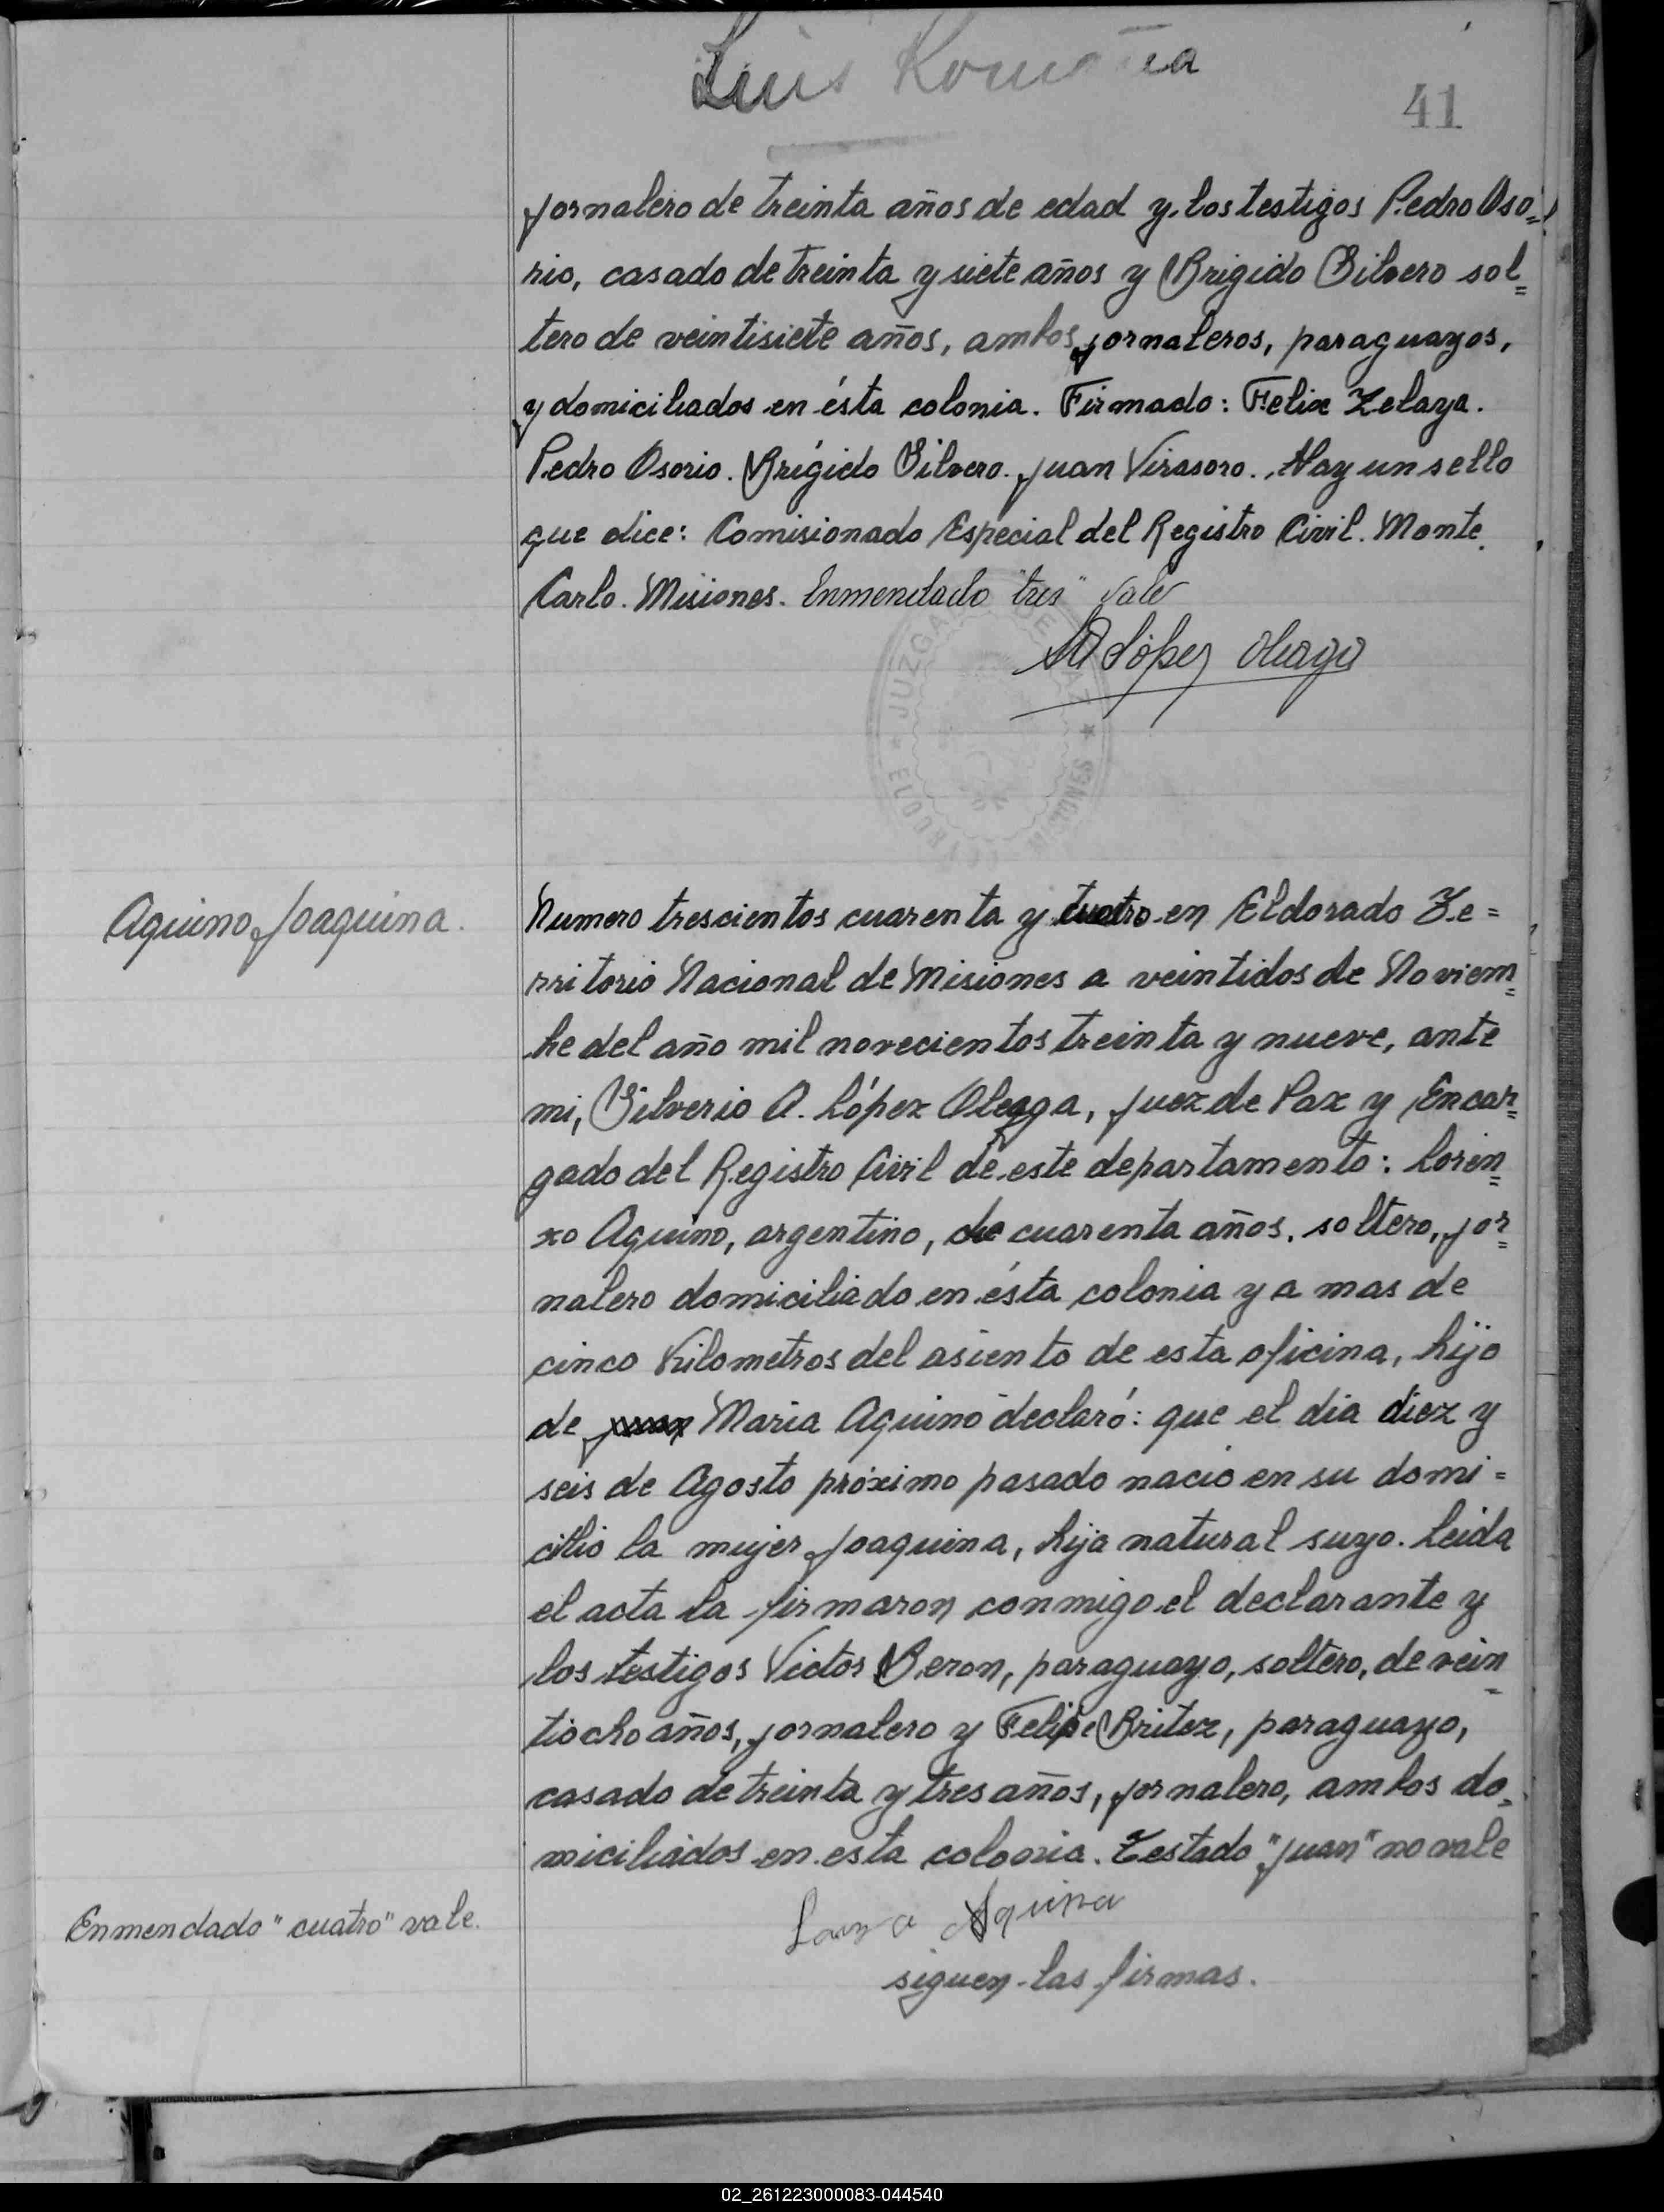 Luis
41
jornalero de treinta años de edad y los testigos Pedro Oso=
rio, casado de treinta y siete años y Brigido Silvero sol=
tero de veintisiete años, ambos jornaleros, paraguayos,
y domiciliados en ésta colonia. Firmado: Felix Zelaya.
Pedro Osorio. Brígido Silvero. Juan Virasoro. Hay un sello
que dice: Comisionado Especial del Registro Civil. Monte
Carlo. Misiones. Enmendado "tres" vale
López Oleaga
JUZGADO DE PAZ
ELDORADO MISIONES
Aquino Joaquina.
Numero trescientos cuarenta y cuatro en Eldorado Te=
rritorio Nacional de Misiones a veintidos de Noviem=
bre del año mil novecientos treinta y nueve, ante
mi, Silverio A. López Oleaga, Juez de Paz y Encar=
gado del Registro Civil de este departamento: Loren=
zo Aquino, argentino, de cuarenta años, soltero, jor=
nalero domiciliado en ésta colonia y a mas de
cinco kilometros del asiento de esta oficina, hijo
de Juan Maria Aquino declaró: que el dia diez y
seis de Agosto próximo pasado nacio en su domi=
cilio la mujer Joaquina, hija natural suyo. Leida
el acta la firmaron conmigo el declarante y
los testigos Victor Beron, paraguayo, soltero, de vein=
tiocho años, jornalero y Felipe Britez, paraguayo,
casado de treinta y tres años, jornalero, ambos do=
miciliados en esta colonia. Testado "Juan" no vale
Enmendado "cuatro" vale.
Aquino
siguen las firmas.
02_261223000083-044540